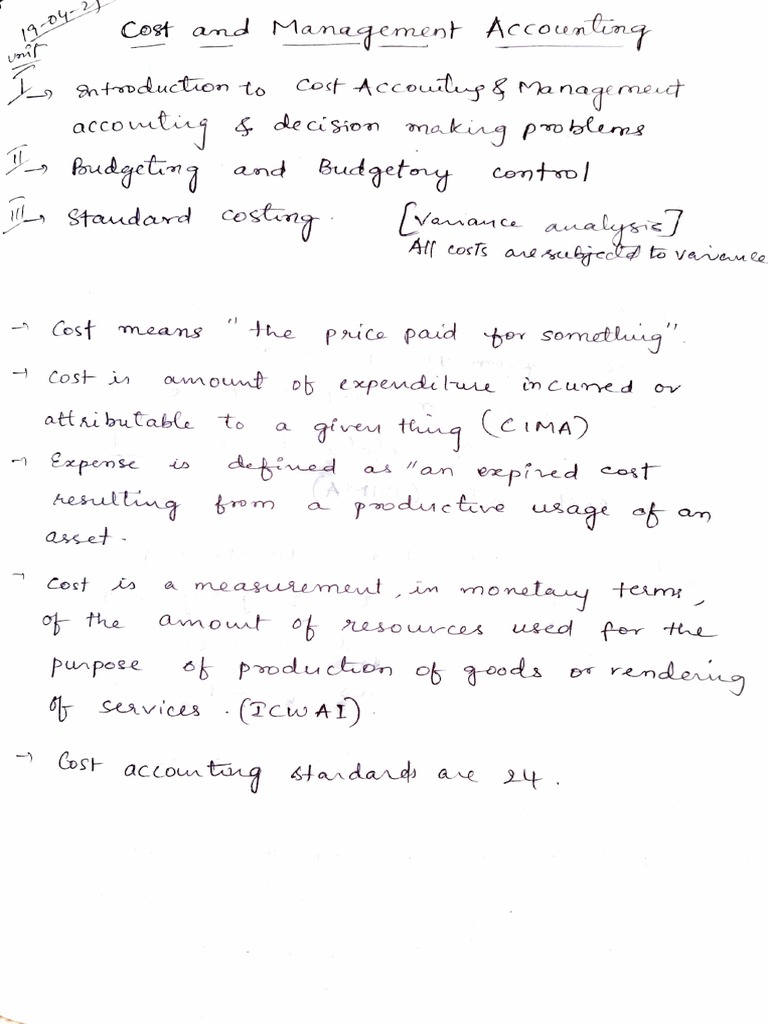 19-04-21
Cost and Management Accounting
unit
I → Introduction to Cost Accounting & Management
accounting & decision making problems
II → Budgeting and Budgetory control
III → Standard costing. [Variance analysis]
All costs are subjected to variance
→ Cost means "the price paid for something".
→ Cost is amount of expenditure incurred or
attributable to a given thing (CIMA)
→ Expense is defined as "an expired cost
resulting from a productive usage of an
asset.
→ Cost is a measurement, in monetary terms,
of the amount of resources used for the
purpose of production of goods or rendering
of services. (ICWAI).
→ Cost accounting standards are 24.